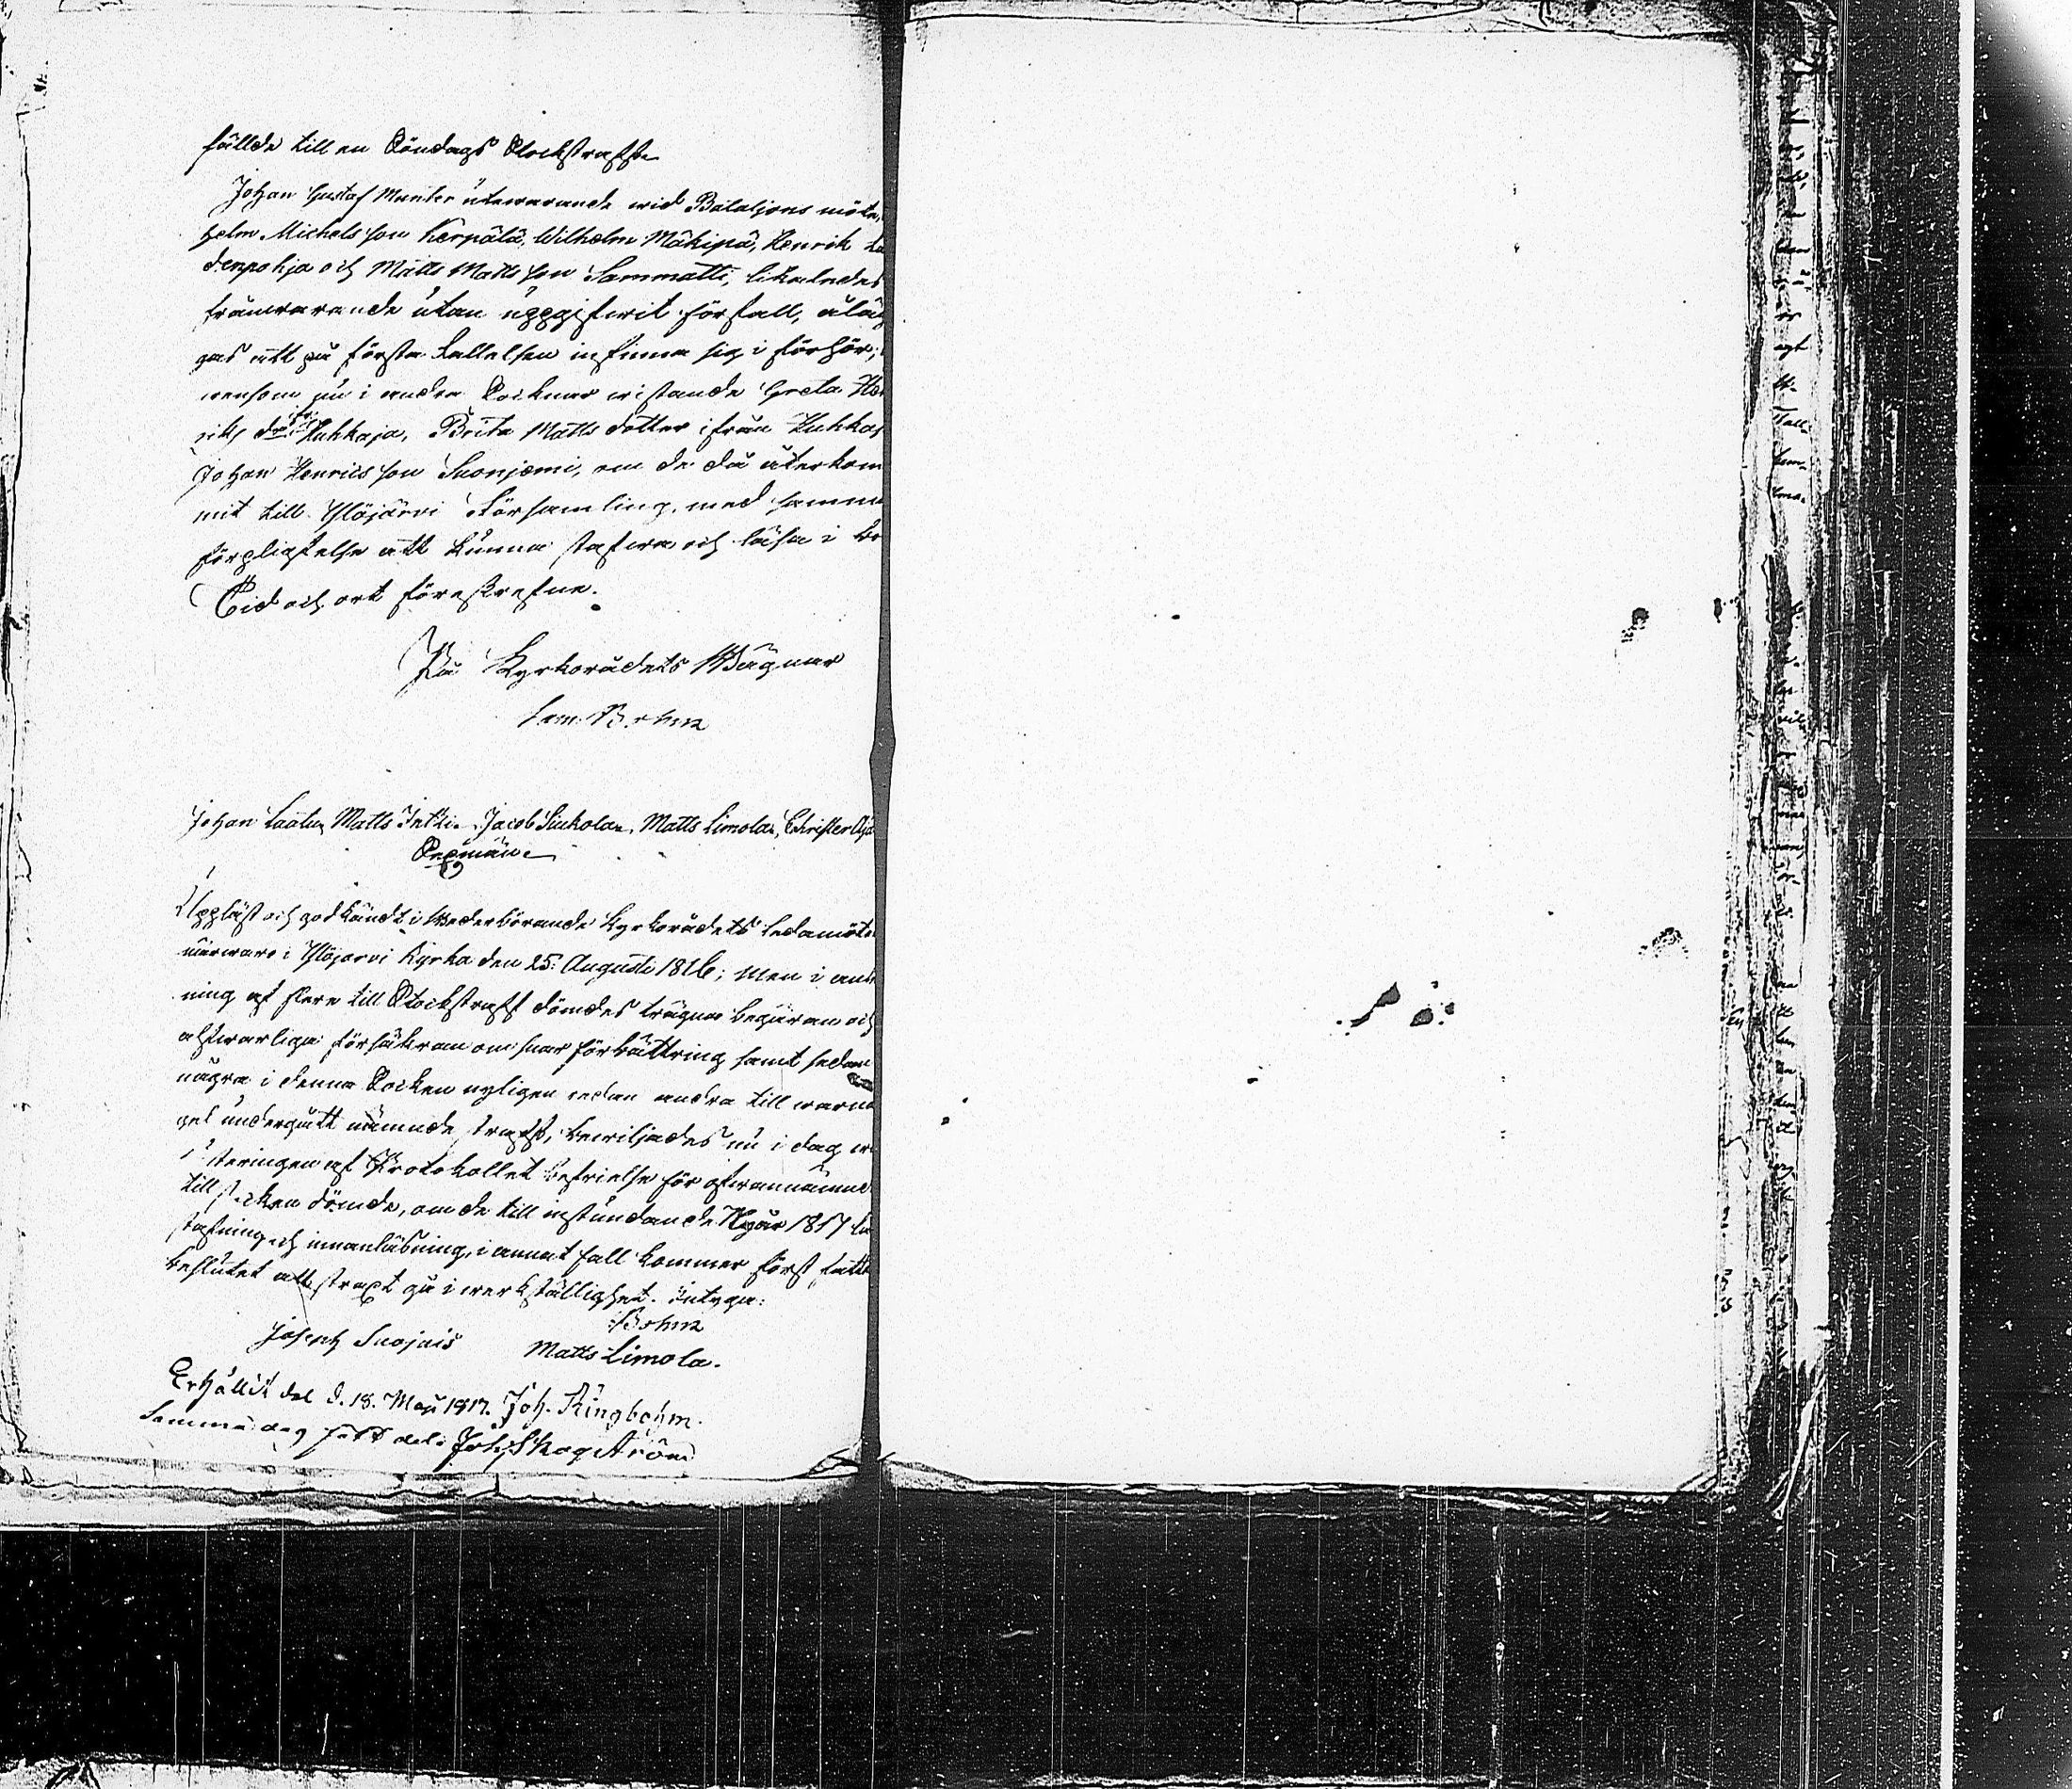 fällde till en Söndags Stockstraff.
Johan Gustaf Munter utewarande wid Bataljons möte,
helm Michelsson Kerpälä, Wilhelm Mäkipä, Henrik La
denpohja och Matts Mattsson Sammatti, likaledes
frånwarande utan uppgifwit förfall, åläg
gas att på första kallelsen infinna sig i förhör;
wensom nu i andra Socknar wistande Greta Hen
riks dr ifr. Kuhkaja, Brita Matts dotter ifrån Kuhkaj
Johan Henricsson Suonjemi, om de då återkom
mit till Ylöjärvi Församling, med samma
förpligtelse att kunna stafwa och läsa i bo
Tid och ort föreskrefne.
På Kyrkorådets Wägnar
Sam. Bohm
Johan Laalu, Matts Intti, Jacob Siukola, Matts Limola, Christer Äijä
Sexmän
Uppläst och godkändt i wederbörande Kyrkorådets Ledamöter
närwaro i Ylöjärvi Kyrka den 25. Augusti 1816; men i anled
ning af flere till Stockstraff dömdes trägna begäran och
alfwarliga försäkran om snar förbättring samt sedan
några i denna Socken nyligen redan andra till warna
gel undergått nämnde straff, bewiljades nu i dag wi
steringen af Protokollet befrielse för ofwannämnde
till stocken dömde, om de till instundande Nyår 1817 lä
stafning och innanläsning, i annat fall kommer först fatta
beslutet att straxt gå i werkställighet. intyga:
Bohm
Joseph Suojais Matts Limola.
Erhållit del d. 18. Maji 1817. Joh. Ringbohm.
Samma dag fått del: Joh. Skogström